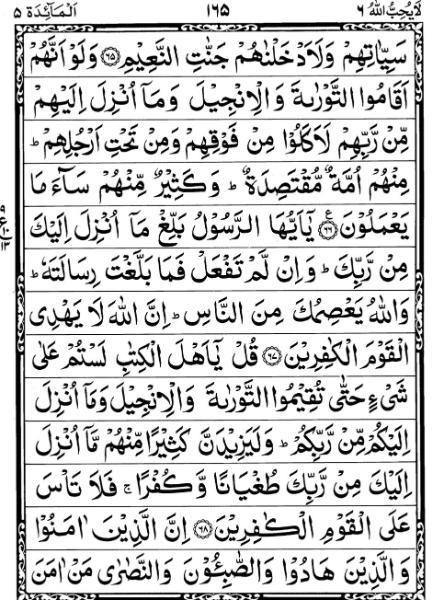 لَا يُحِبُّ اللهُ ٦ ١٦٥ اَلْمَآئِدَة ٥
سَيِّاٰتِهِمْ وَلَاَدْخَلْنٰهُمْ جَنّٰتِ النَّعِيْمِ ﴿٦٥﴾ وَلَوْ اَنَّهُمْ
اَقَامُوا التَّوْرٰىةَ وَالْاِنْجِيْلَ وَمَاۤ اُنْزِلَ اِلَيْهِمْ
مِّنْ رَّبِّهِمْ لَاَكَلُوْا مِنْ فَوْقِهِمْ وَمِنْ تَحْتِ اَرْجُلِهِمْ ؕ
مِنْهُمْ اُمَّةٌ مُّقْتَصِدَةٌ ؕ وَكَثِيْرٌ مِّنْهُمْ سَآءَ مَا
يَعْمَلُوْنَ ﴿٦٦﴾ ع يٰۤاَيُّهَا الرَّسُوْلُ بَلِّغْ مَاۤ اُنْزِلَ اِلَيْكَ
٩ ع ١٠ ١٣
مِنْ رَّبِّكَ ؕ وَاِنْ لَّمْ تَفْعَلْ فَمَا بَلَّغْتَ رِسَالَتَهٗ ؕ
وَاللهُ يَعْصِمُكَ مِنَ النَّاسِ ؕ اِنَّ اللهَ لَا يَهْدِى
الْقَوْمَ الْكٰفِرِيْنَ ﴿٦٧﴾ قُلْ يٰۤاَهْلَ الْكِتٰبِ لَسْتُمْ عَلٰى
شَىْءٍ حَتّٰى تُقِيْمُوا التَّوْرٰىةَ وَالْاِنْجِيْلَ وَمَاۤ اُنْزِلَ
اِلَيْكُمْ مِّنْ رَّبِّكُمْ ؕ وَلَيَزِيْدَنَّ كَثِيْرًا مِّنْهُمْ مَّاۤ اُنْزِلَ
اِلَيْكَ مِنْ رَّبِّكَ طُغْيَانًا وَّكُفْرًا ۚ فَلَا تَاْسَ
عَلَى الْقَوْمِ الْكٰفِرِيْنَ ﴿٦٨﴾ اِنَّ الَّذِيْنَ اٰمَنُوْا
وَالَّذِيْنَ هَادُوْا وَالصّٰبِئُوْنَ وَالنَّصٰرٰى مَنْ اٰمَنَ